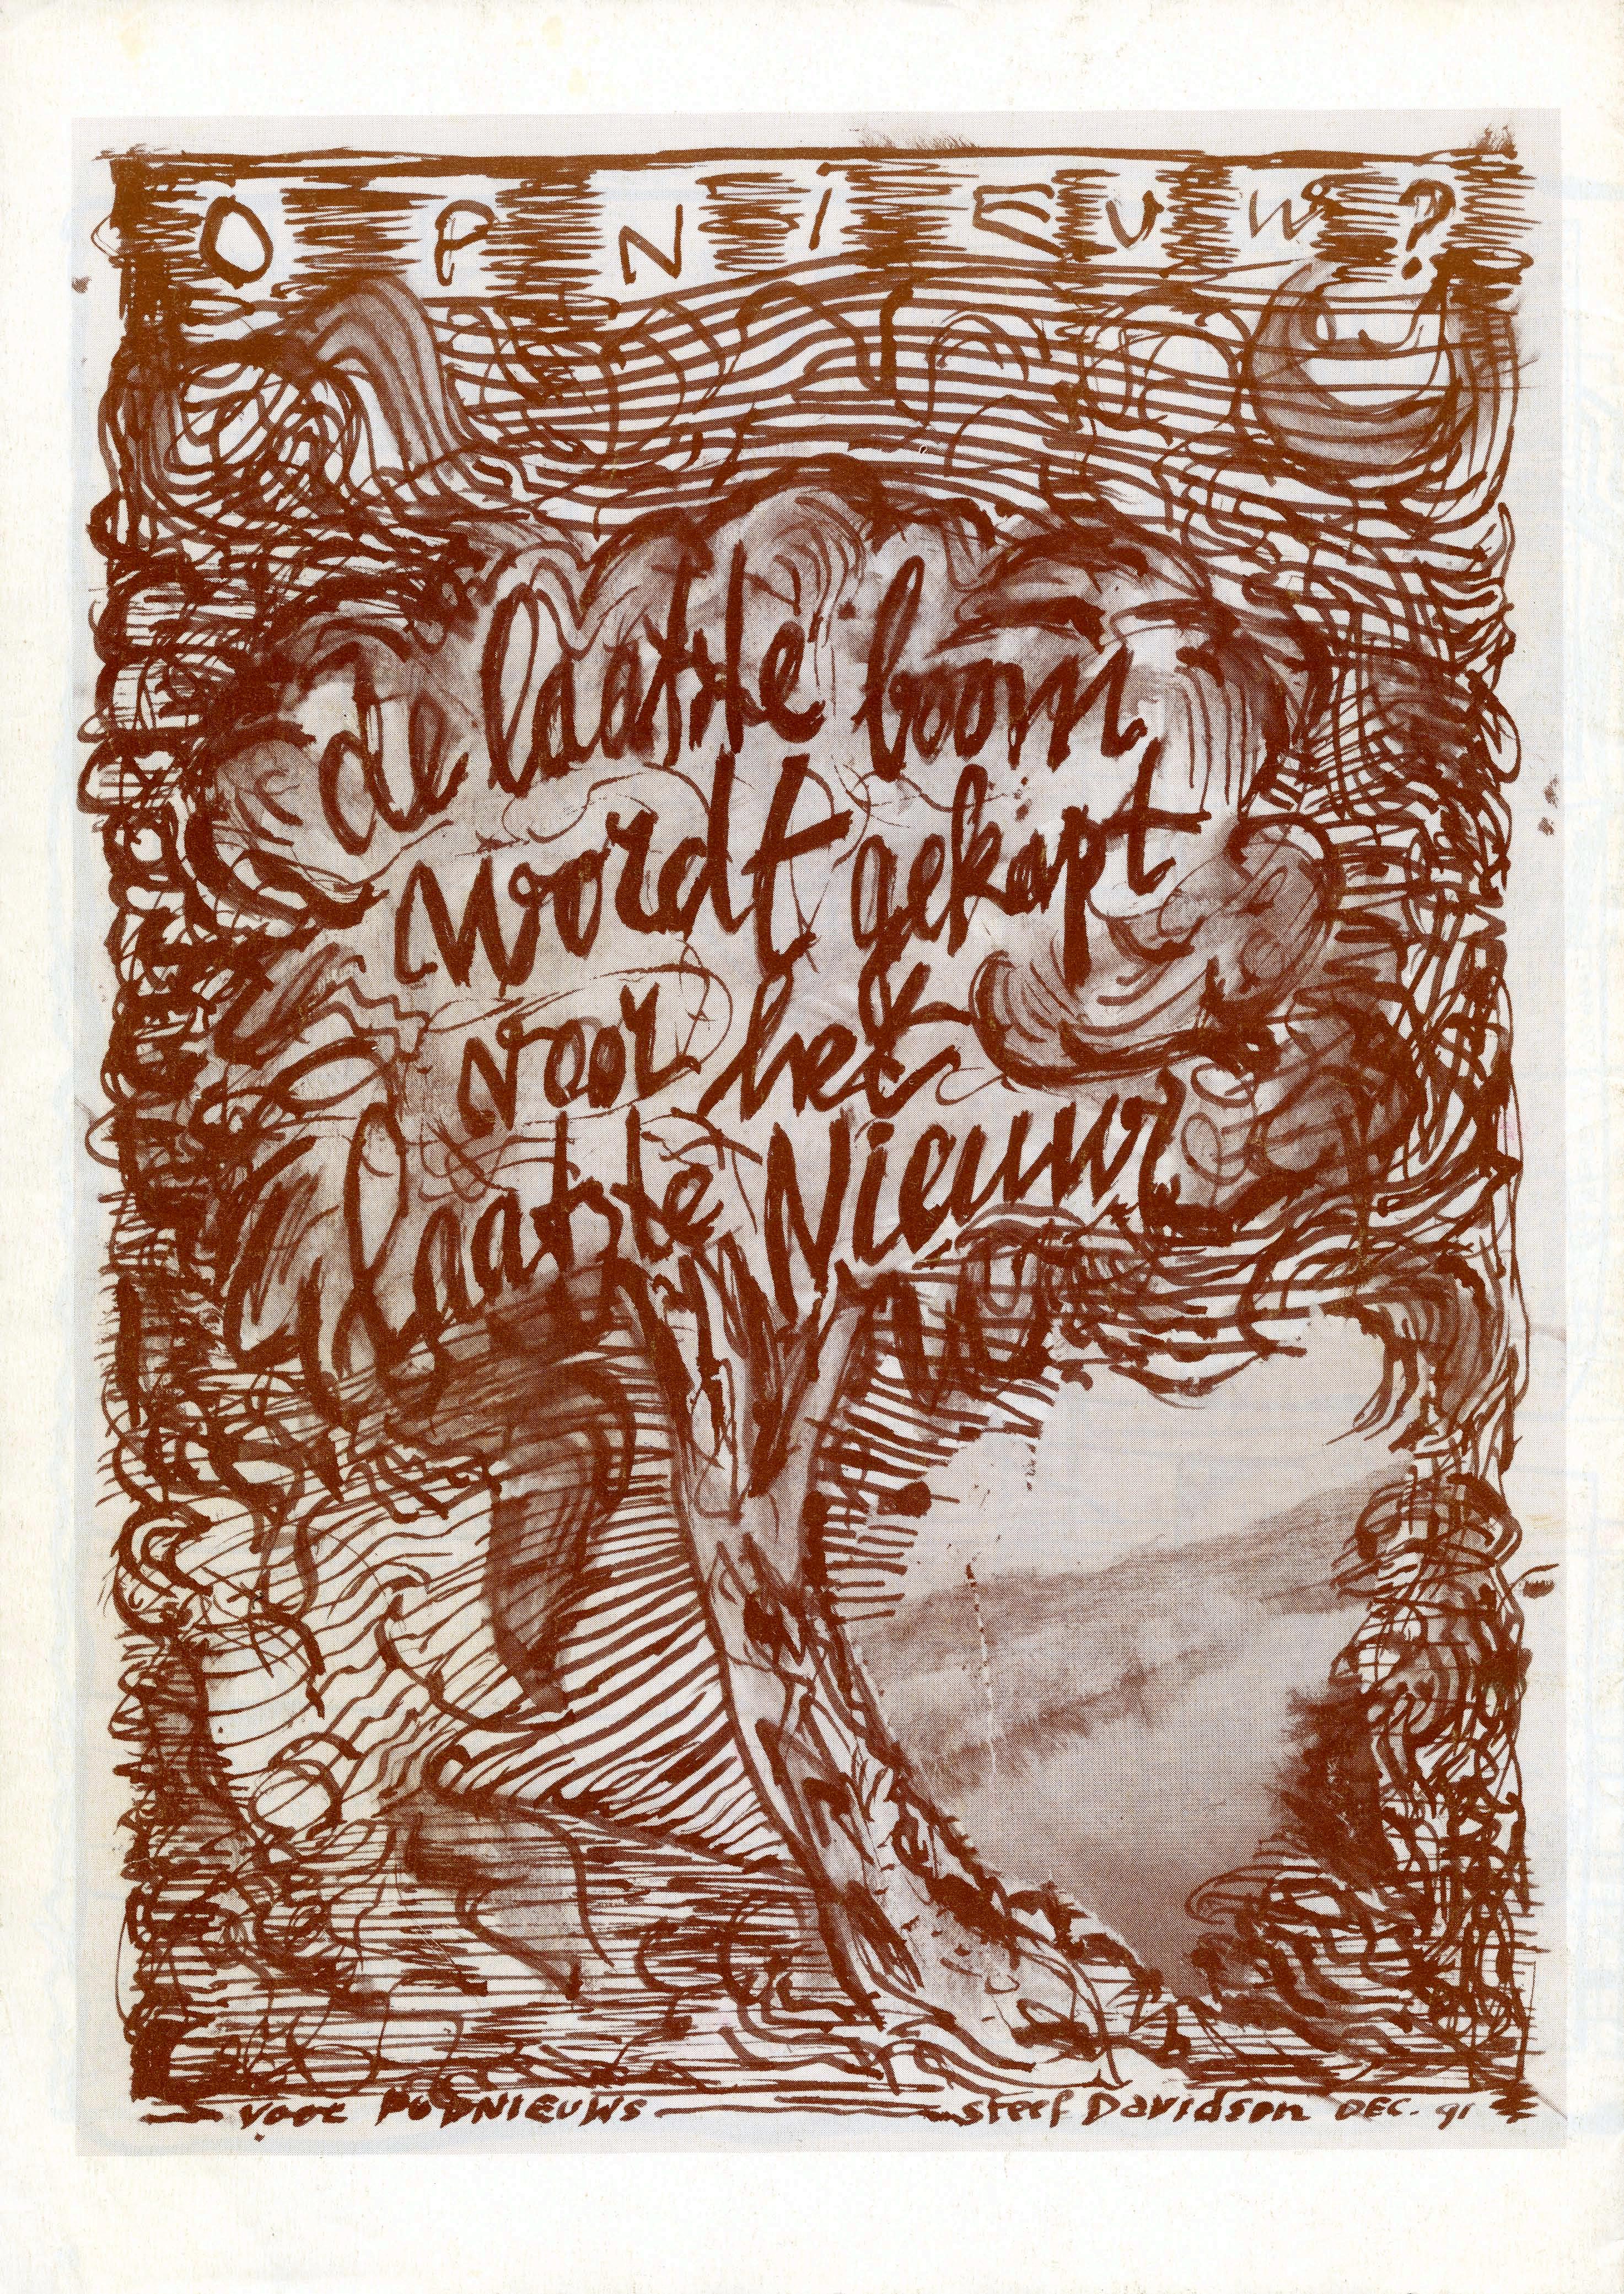 OPNIEUW?
de laatste boom
wordt gekapt
voor het
laatste Nieuws
voor POPNIEUWS
Steef Davidson DEC. 91